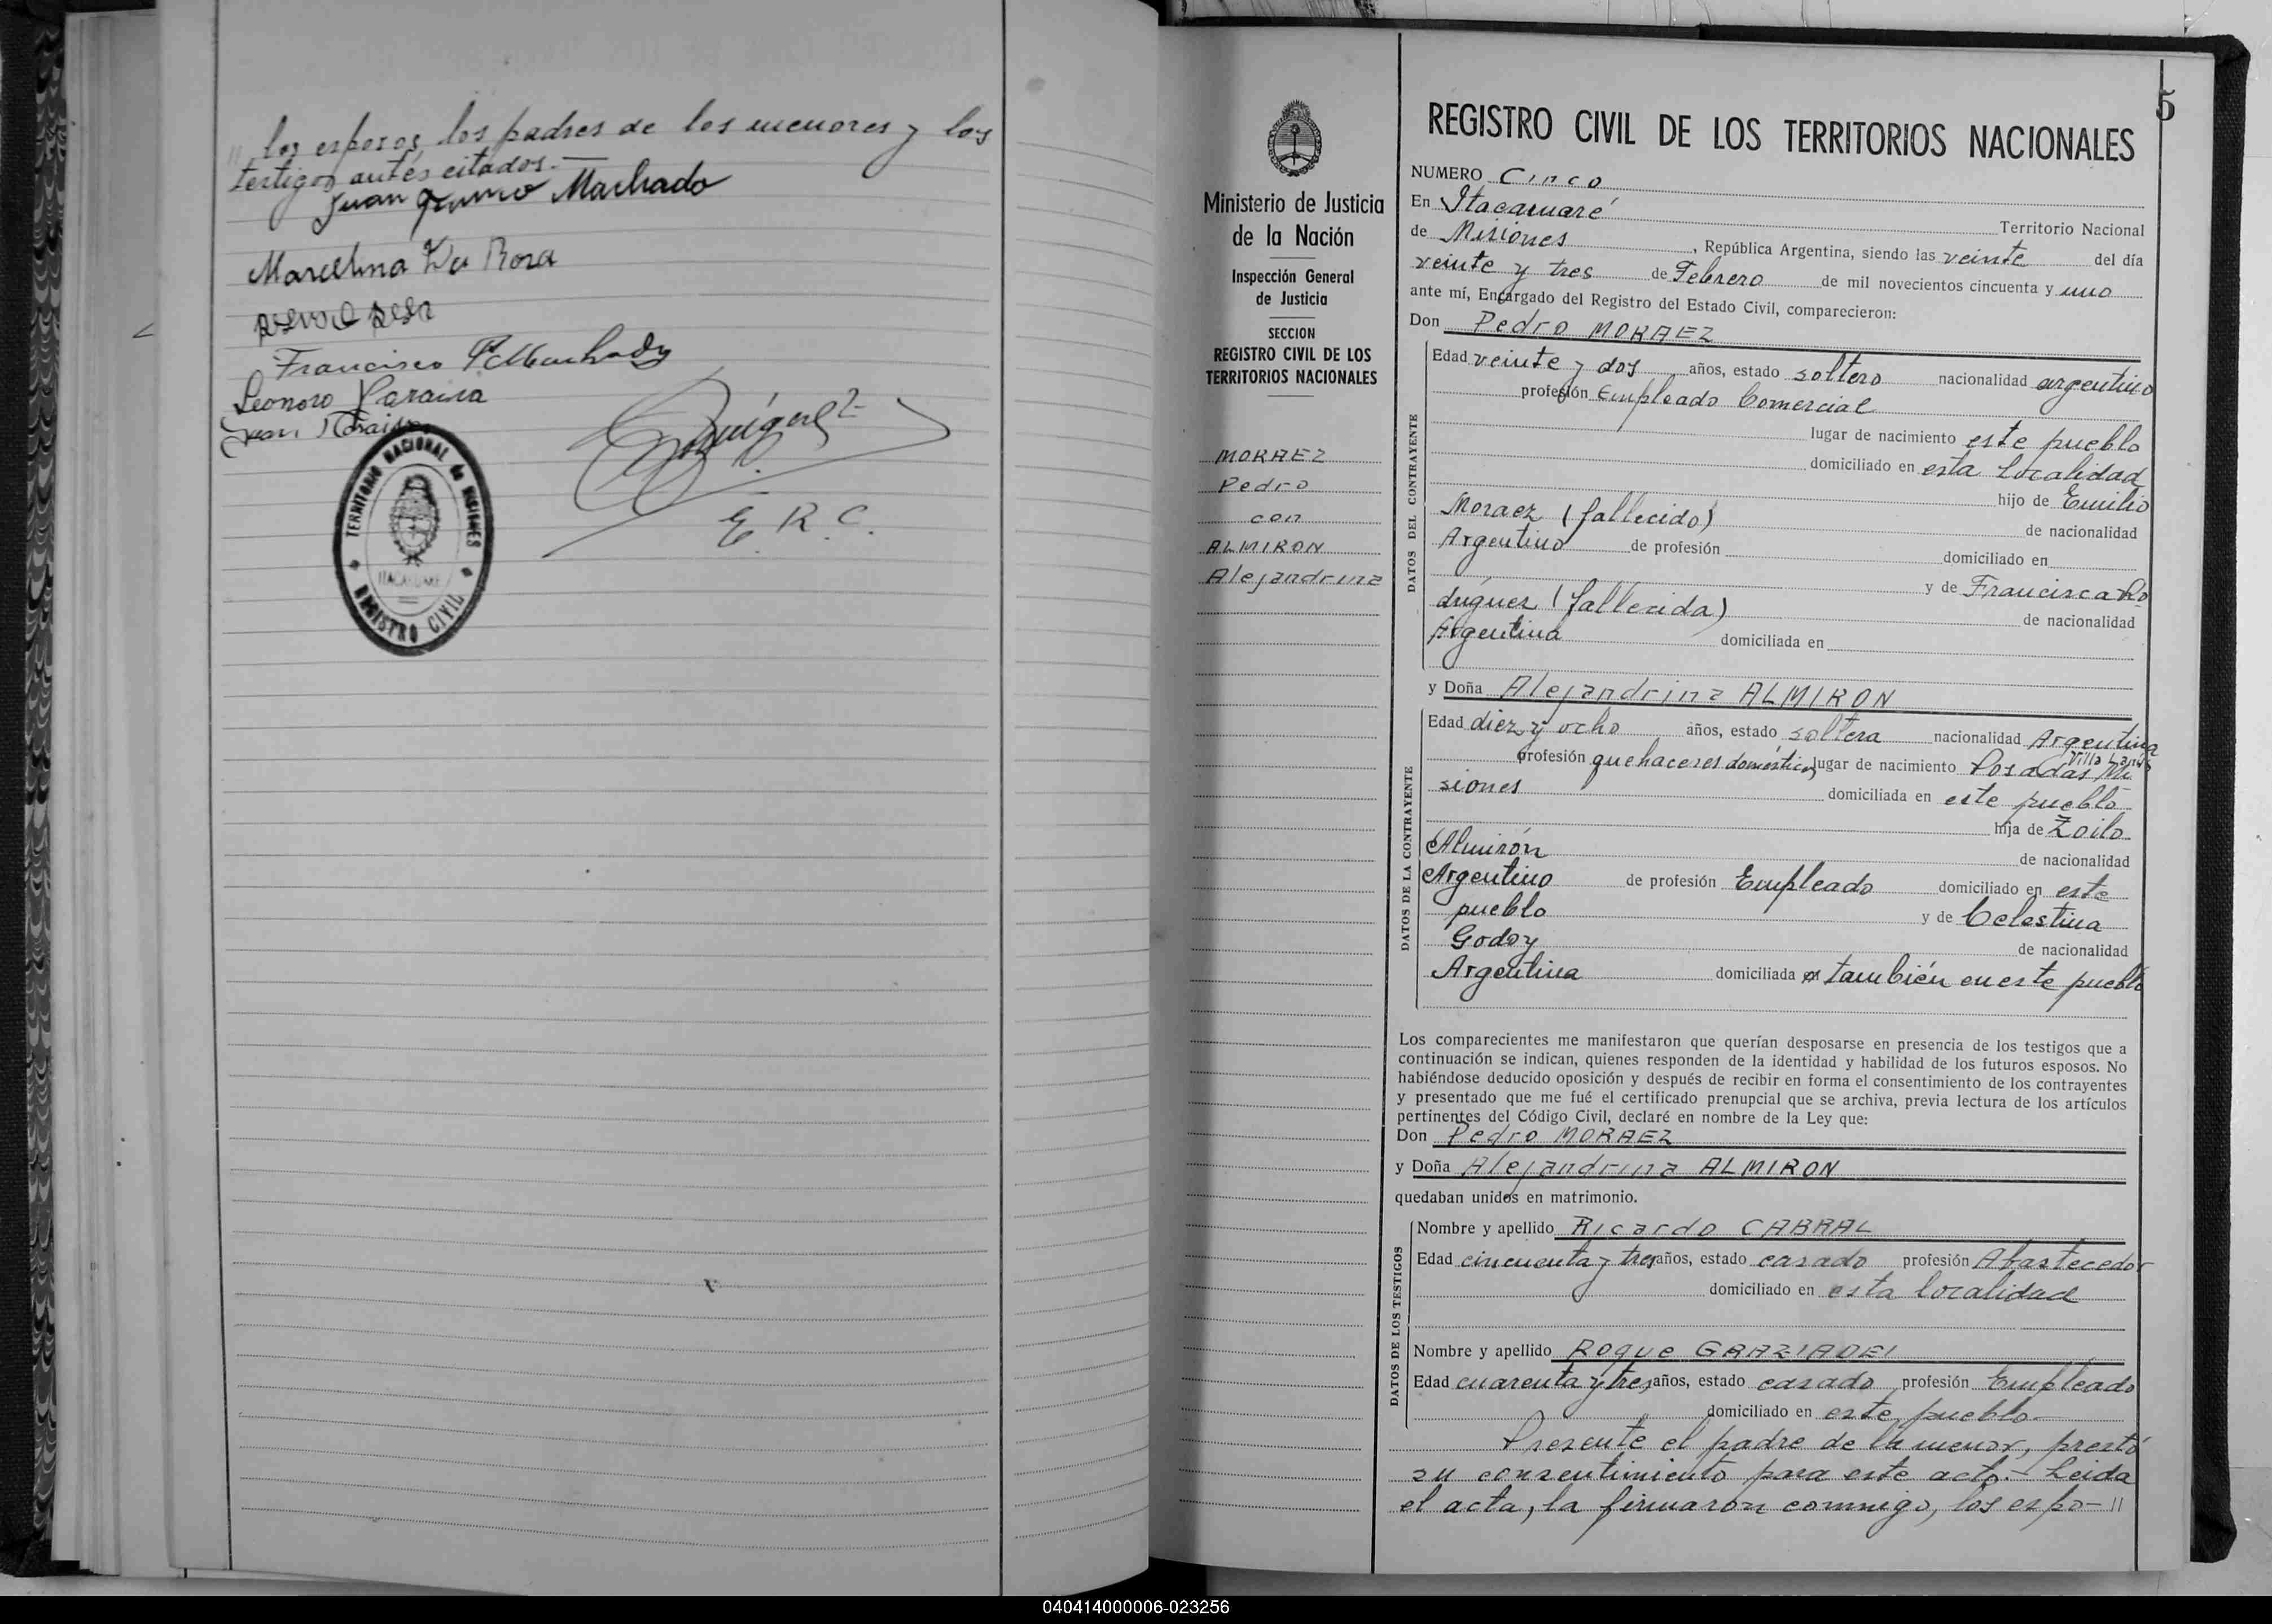 " los esposos, los padres de los menores y los
testigos antes citados.—
Juan Machado
Marcelina Da Rosa
Francisco
Leonoro
Juan
E. R. C.
TERRITORIO NACIONAL de MISIONES
ITACARUARE
REGISTRO CIVIL
5
Ministerio de Justicia
de la Nación
Inspección General
de Justicia
SECCION
REGISTRO CIVIL DE LOS
TERRITORIOS NACIONALES
MORAEZ
Pedro
con
ALMIRON
Alejandrina
REGISTRO CIVIL DE LOS TERRITORIOS NACIONALES
NUMERO Cinco
En Itacaruaré Territorio Nacional
de Misiones, República Argentina, siendo las veinte del día
veinte y tres de Febrero de mil novecientos cincuenta y uno
ante mí, Encargado del Registro del Estado Civil, comparecieron:
Don Pedro MORAEZ
DATOS DEL CONTRAYENTE
Edad veinte y dos años, estado soltero nacionalidad argentino
profesión Empleado Comercial
lugar de nacimiento este pueblo
domiciliado en esta localidad
hijo de Emilio
Moraez (fallecido) de nacionalidad
Argentino de profesión domiciliado en
y de Francisca Ro
dríguez (fallecida) de nacionalidad
Argentina domiciliada en
y Doña Alejandrina ALMIRON
DATOS DE LA CONTRAYENTE
Edad diez y ocho años, estado soltera nacionalidad Argentina
Villa Lanús
profesión quehaceres domésticos lugar de nacimiento Posadas Mi
siones domiciliada en este pueblo
hija de Zoilo
Almirón de nacionalidad
Argentino de profesión Empleado domiciliado en este
pueblo y de Celestina
Godoy de nacionalidad
Argentina domiciliada también en este pueblo
Los comparecientes me manifestaron que querían desposarse en presencia de los testigos que a
continuación se indican, quienes responden de la identidad y habilidad de los futuros esposos. No
habiéndose deducido oposición y después de recibir en forma el consentimiento de los contrayentes
y presentado que me fué el certificado prenupcial que se archiva, previa lectura de los artículos
pertinentes del Código Civil, declaré en nombre de la Ley que:
Don Pedro MORAEZ
y Doña Alejandrina ALMIRON
quedaban unidos en matrimonio.
DATOS DE LOS TESTIGOS
Nombre y apellido Ricardo CABRAL
Edad cincuenta y tres años, estado casado profesión Abastecedor
domiciliado en esta localidad
Nombre y apellido Roque GRAZIADEI
Edad cuarenta y tres años, estado casado profesión Empleado
domiciliado en este pueblo.—
Presente el padre de la menor, prestó
su consentimiento para este acto.— Leida
el acta, la firmaron conmigo, los espo— "
040414000006-023256